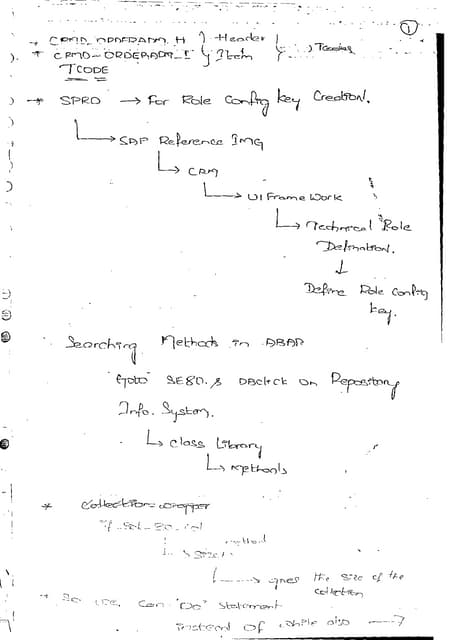 1
Header
* CRMD_ORDERADM_I Item
TCODE
* SPRO → For Role Config key Creation.
SAP Reference IMG
CRM
UI Frame Work
Technical Role
Defination.
Define Role Config
key.
Searching Methods in ABAP
Goto SE80 & DBclick on Repository
Info. System.
Class Library
Methods
* Collection wrapper
method
size
gives the size of the
collection
* So we can "Do" statement
instead of while also